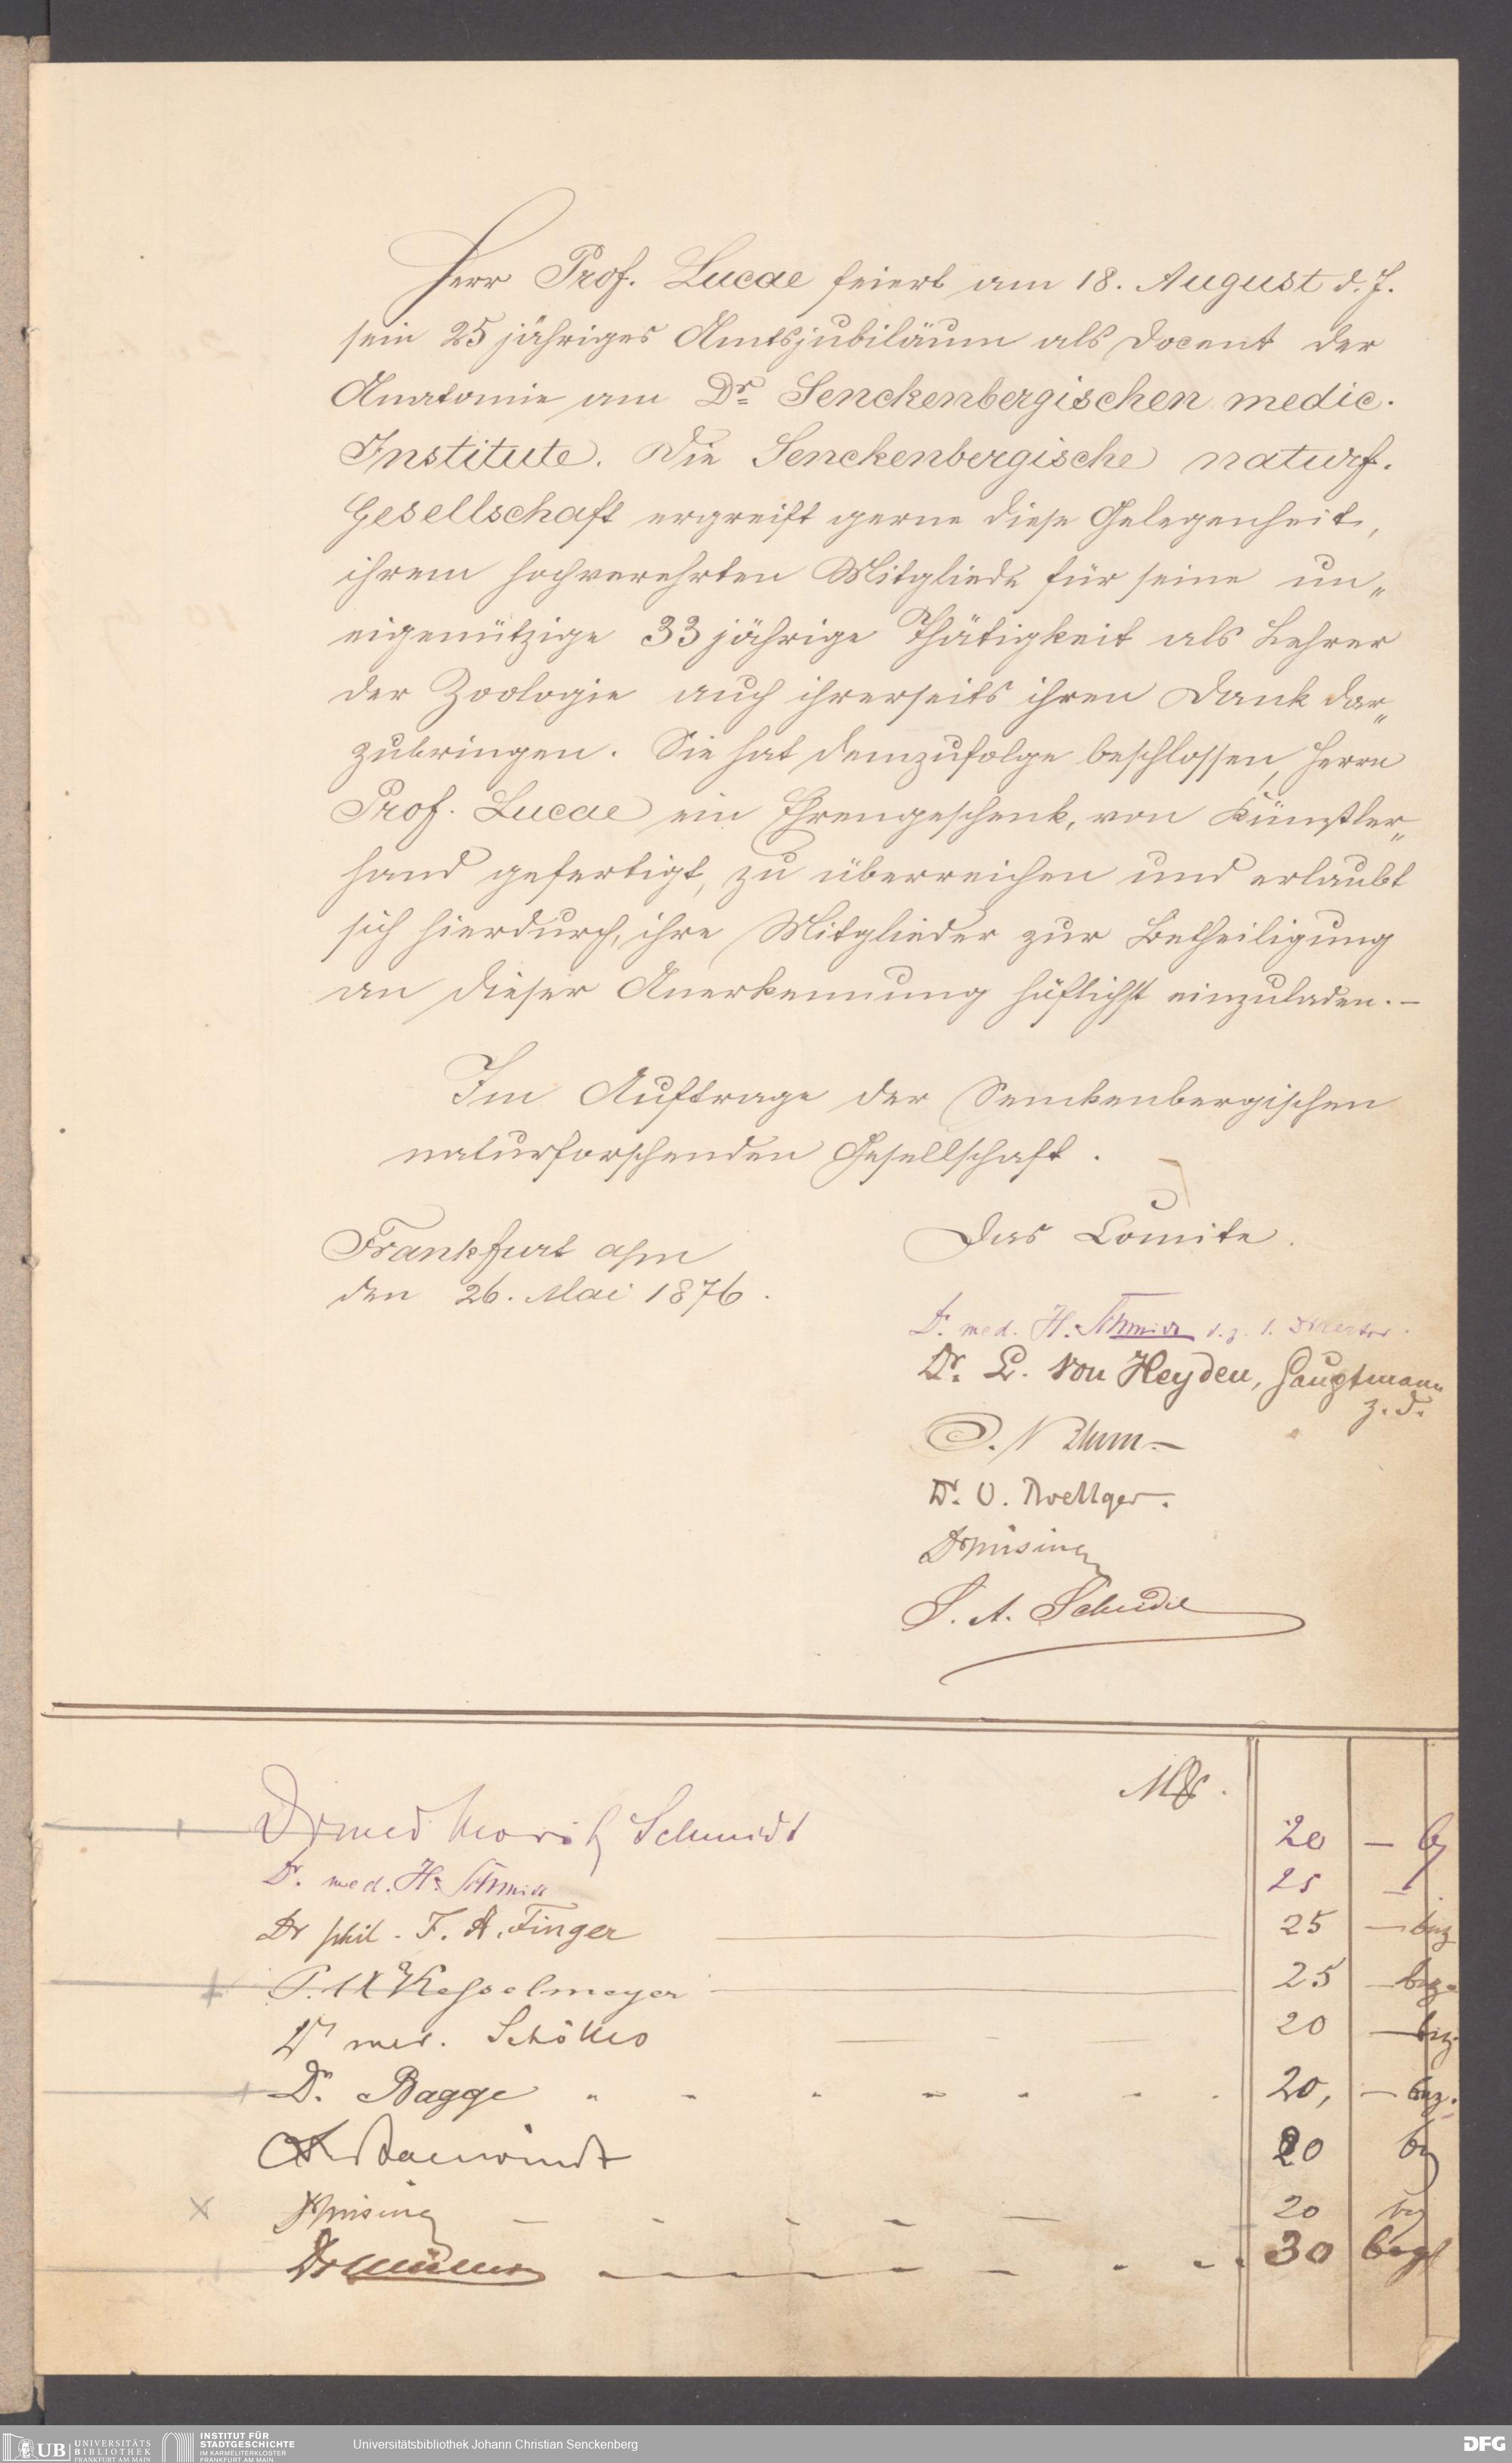 Herr Prof. Lucae feiert am 18. August d. J.
sein 25 jähriges Amtsjubiläum als Docent der
Anatomie am Dr Senckenbergischen medic.
Institute. Die Senckenbergische naturf.
Gesellschaft ergreift gerne diese Gelegenheit,
ihrem hochverehrten Mitgliede für seine un„
eigennützige 33 jährige Thätigkeit als Lehrer
der Zoologie auch ihrerseits ihren Dank dar„
zubringen. Sie hat demzufolge beschlossen, Herrn
Prof. Lucae ein Ehrengeschenk, von Künstler„
hand gefertigt, zu überreichen und erlaubt
sich hierdurch, ihre Mitglieder zur Betheiligung
an dieser Anerkennung höflichst einzuladen. –
Im Auftrage der Senckenbergischen
naturforschenden Gesellschaft.
Das Comite.
Frankfurt a/m
den 26. Mai 1876.
Dr. med. H. Schmidt d. z. I. Direktor.
Dr. L. von Heyden, Hauptmann
z. D.
J. Blum
Dr. O. Boettger.
D. A. Scheidel
Mk.
Dr med Moritz Schmidt 20 —
Dr. med. H. Schmidt 25 —
Dr phil. F. A. Finger 25 — bez
P. A. Kesselmeyer 25 — bez.
Dr med. Schölles 20 — bez
Dr. Bagge 20, — bez.
20
20
30 bez
UB UNIVERSITÄTS
BIBLIOTHEK
FRANKFURT AM MAIN
INSTITUT FÜR
STADTGESCHICHTE
IM KARMELITERKLOSTER
FRANKFURT AM MAIN
Universitätsbibliothek Johann Christian Senckenberg
DFG